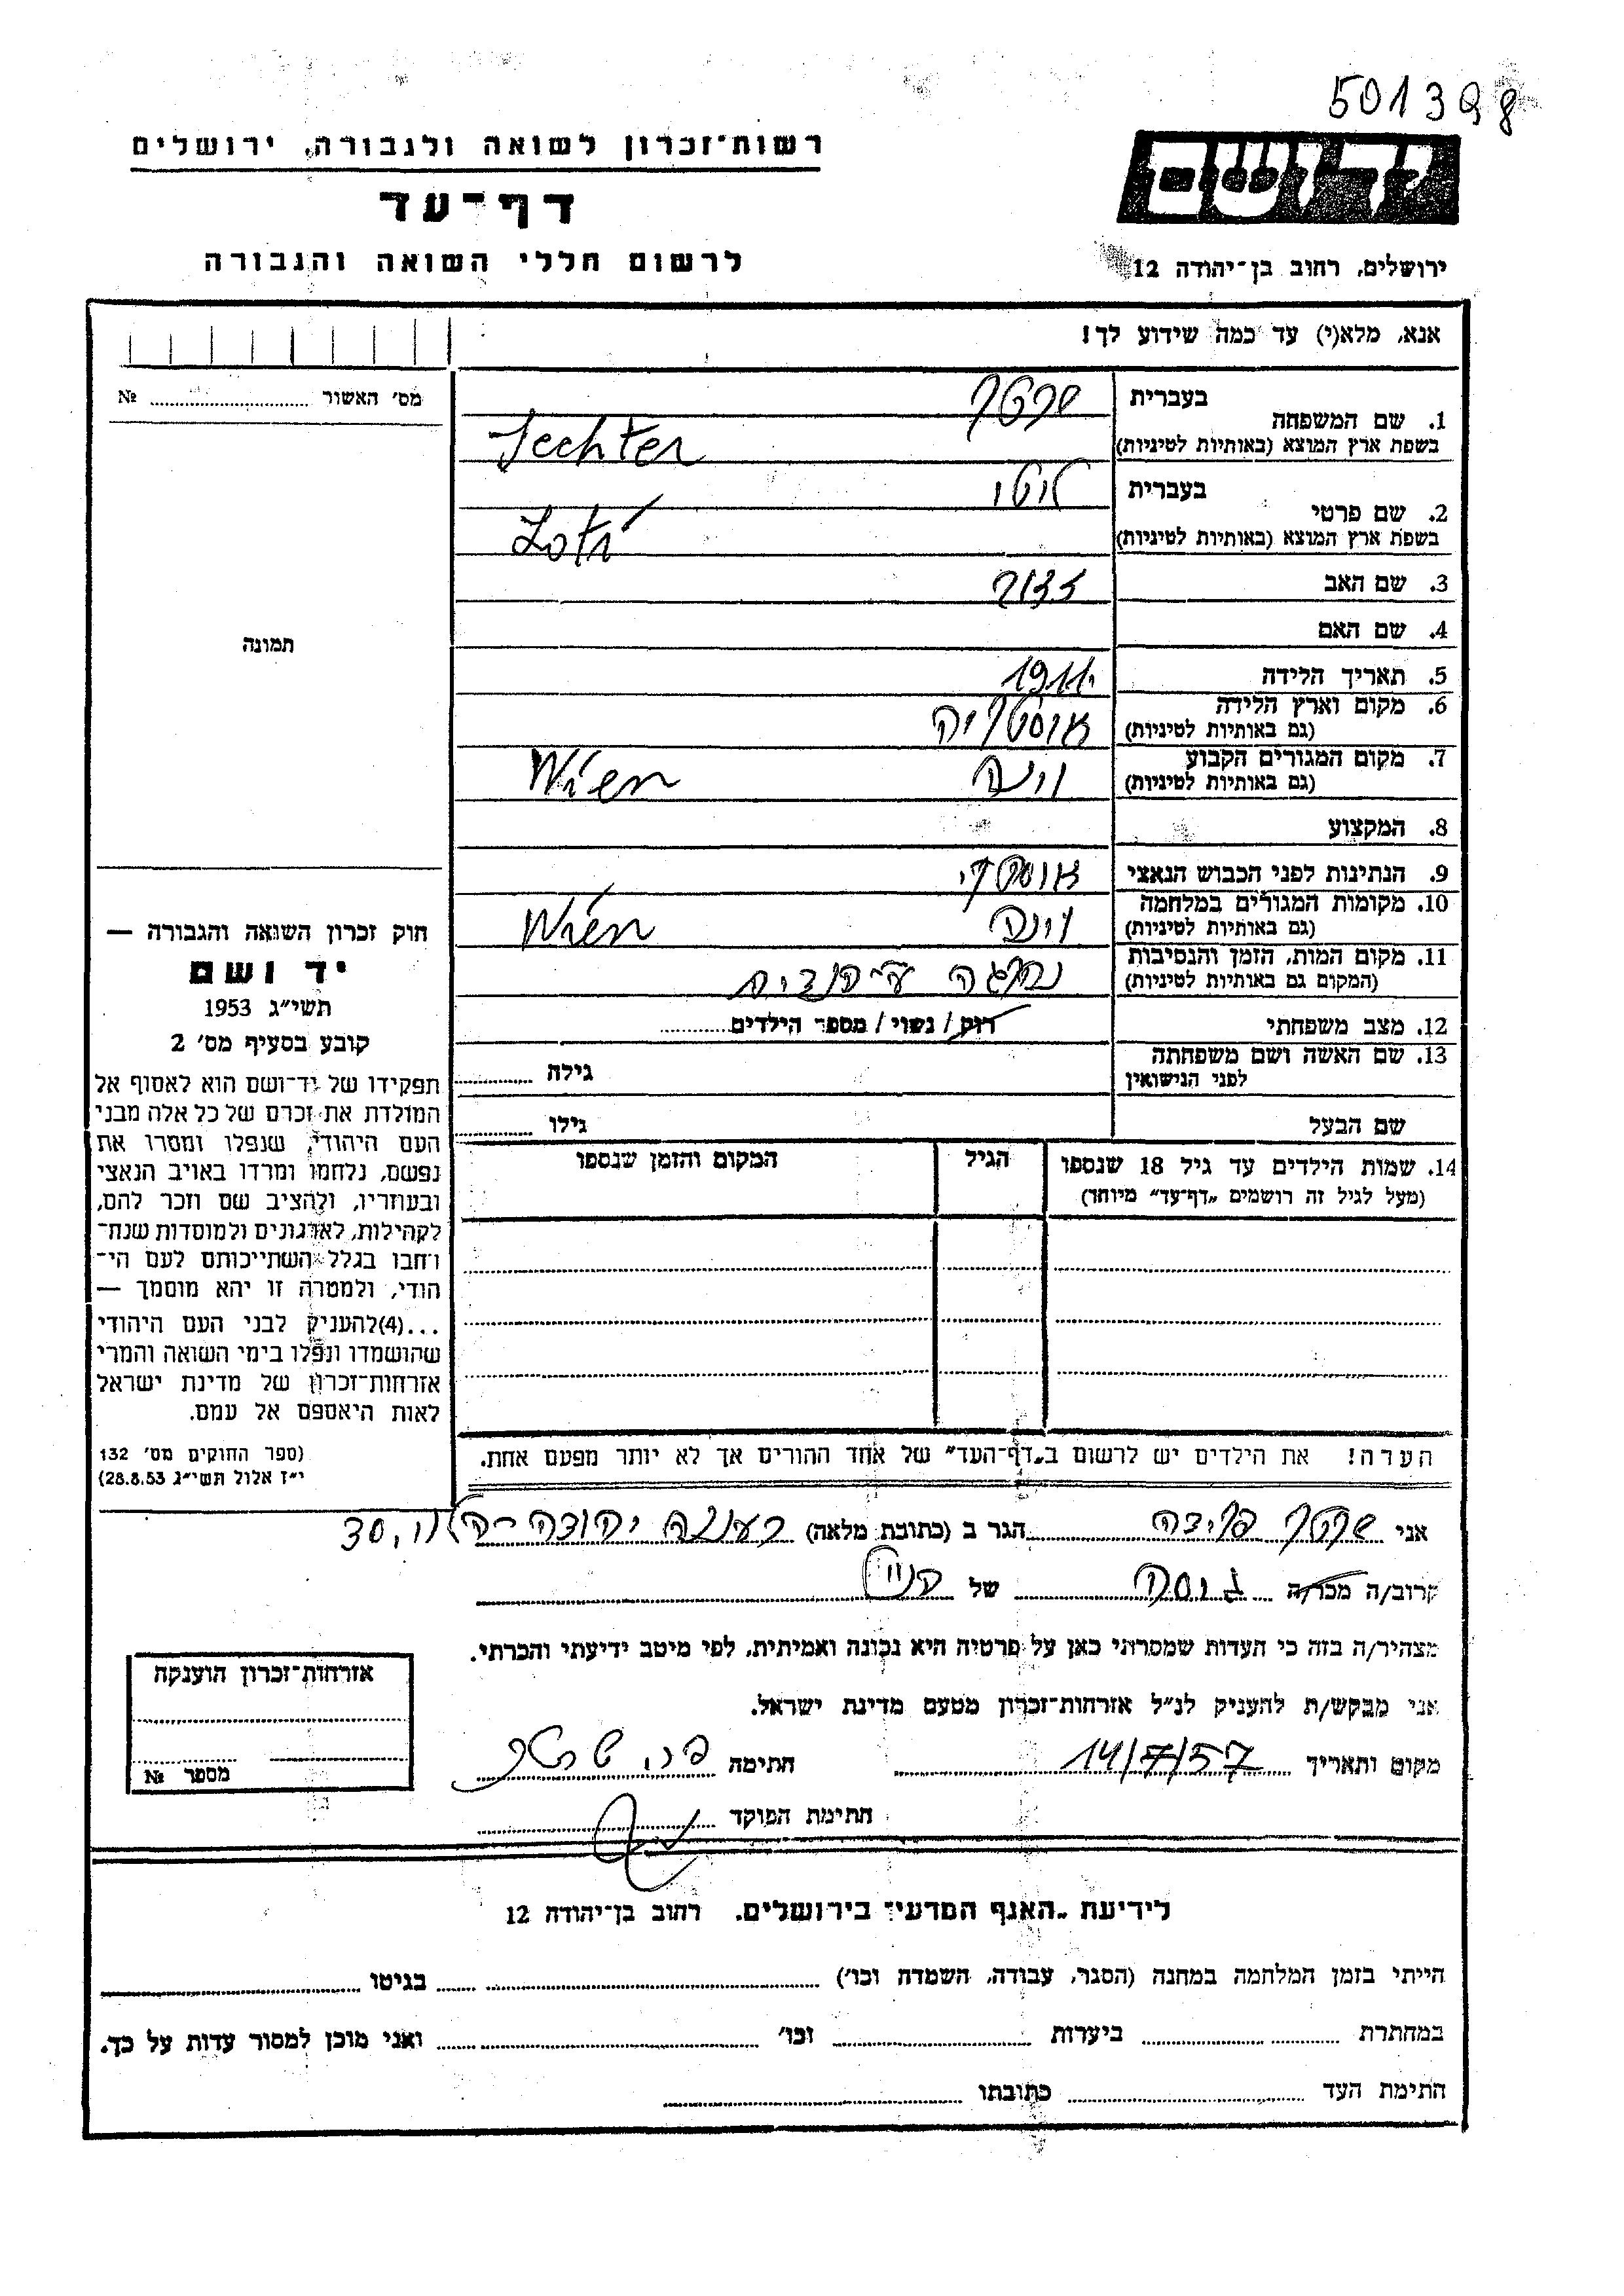 501398
רשות־זכרון לשואה ולגבורה, ירושלים
דף־עד
לרשום חללי השואה והגבורה
יד ושם
ירושלים, רחוב בן־יהודה 12
אנא, מלא(י) עד כמה שידוע לך!
מס' האשור № 
1. שם המשפחה
בעברית שכטר
בשפת ארץ המוצא (באותיות לטיניות) Schechter
2. שם פרטי
בעברית לוטי
בשפת ארץ המוצא (באותיות לטיניות) Loti
3. שם האב
4. שם האם
5. תאריך הלידה 1911
6. מקום וארץ הלידה
(גם באותיות לטיניות) אוסטריה
7. מקום המגורים הקבוע
(גם באותיות לטיניות) וינה Wien
8. המקצוע
9. הנתינות לפני הכבוש הנאצי אוסטרי
10. מקומות המגורים במלחמה
(גם באותיות לטיניות) וינה Wien
11. מקום המות, הזמן והנסיבות
(המקום גם באותיות לטיניות) נהרגה ע"י הנצים
12. מצב משפחתי רוק / נשוי / מספר הילדים
13. שם האשה ושם משפחתה
לפני הנישואין גילה
שם הבעל גילו
14. שמות הילדים עד גיל 18 שנספו הגיל המקום והזמן שנספו
(מעל לגיל זה רושמים „דף־עד" מיוחד)
הערה! את הילדים יש לרשום ב„דף־העד" של אחד ההורים אך לא יותר מפעם אחת.
תמונה
חוק זכרון השואה והגבורה —
יד ושם
תשי״ג 1953
קובע בסעיף מס' 2
תפקידו של יד־ושם הוא לאסוף אל
המולדת את זכרם של כל אלה מבני
העם היהודי, שנפלו ומסרו את
נפשם, נלחמו ומרדו באויב הנאצי
ובעוזריו, ולהציב שם וזכר להם,
לקהילות, לארגונים ולמוסדות שנח־
רחבו בגלל השתייכותם לעם הי־
הודי, ולמטרה זו יהא מוסמך —
...(4)להעניק לבני העם היהודי
שהושמדו ונפלו בימי השואה והמרי
אזרחות־זכרון של מדינת ישראל
לאות היאספם אל עמם.
(ספר החוקים מס' 132
י״ז אלול תשי״ג 28.8.53)
אני שכטר פרידה הגר ב (כתובת מלאה) רעננה יהודה הלוי, 30
קרוב/ה מכר/ה גיסה של הנ"ל
מצהיר/ה בזה כי העדות שמסרתי כאן על פרטיה היא נכונה ואמיתית, לפי מיטב ידיעתי והכרתי.
אני מבקש/ת להעניק לנ״ל אזרחות־זכרון מטעם מדינת ישראל.
מקום ותאריך 14/7/57 חתימה פר. שכטר
חתימת הפוקד
אזרחות־זכרון הוענקה
מספר №
לידיעת „האגף המדעי" בירושלים. רחוב בן־יהודה 12
הייתי בזמן המלחמה במחנה (הסגר, עבודה, השמדה וכו') בגיטו
במחתרת ביערות וכו' ואני מוכן למסור עדות על כך.
חתימת העד כתובתו